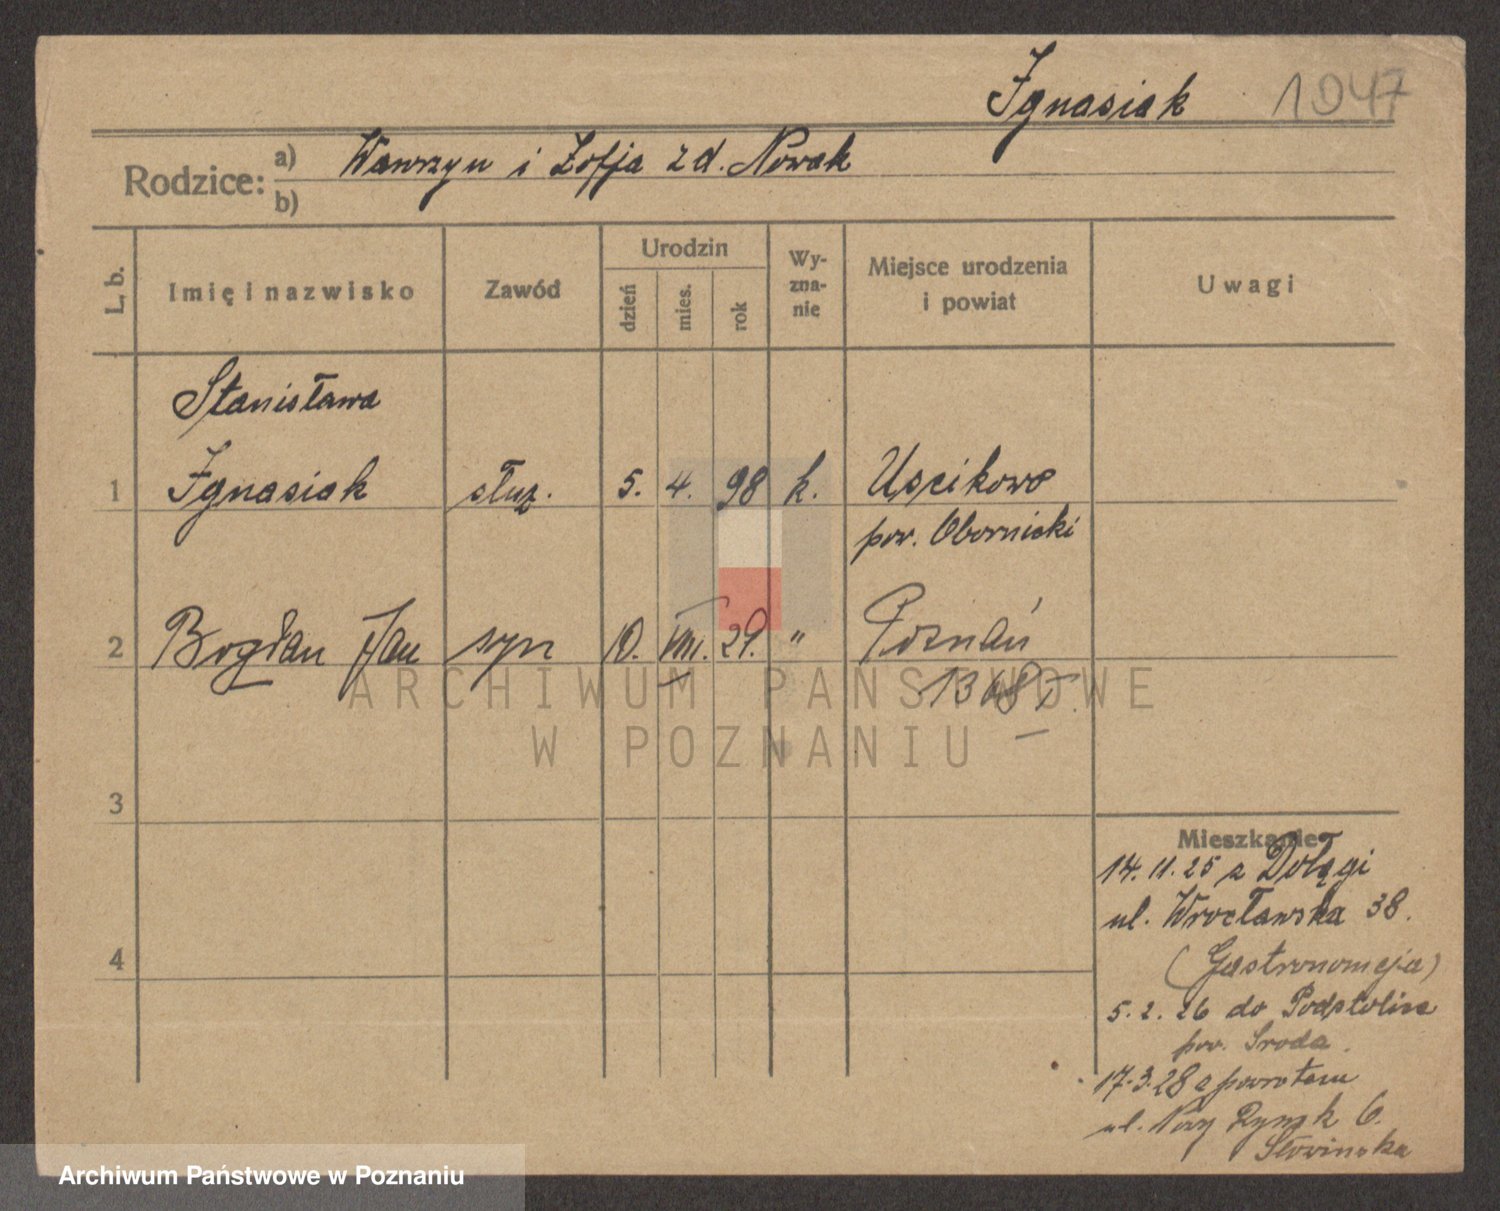 Ignasiak 1047
Rodzice: a) Wawrzyn i Zofja z d. Nowak
b)
L. b.
Imię i nazwisko
Zawód
Urodzin
dzień
mies.
rok
Wy-
zna-
nie
Miejsce urodzenia
i powiat
Uwagi
Stanisława
1 Ignasiak służ. 5. 4. 98 k. Uścikowo
pow. Obornicki
2 Bogdan Jan syn 10. VIII. 29. " Poznań
ARCHIWUM PAŃSTWOWE
W POZNANIU
3
4
Mieszkanie
14. 11. 25 z Dołęgi
ul. Wrocławska 38.
(Gastronomeja)
5. 2. 26 do Podstolice
pow. Środa.
17. 3. 28 z powrotem
ul. Nowy Rynek 6.
Słowińska
Archiwum Państwowe w Poznaniu